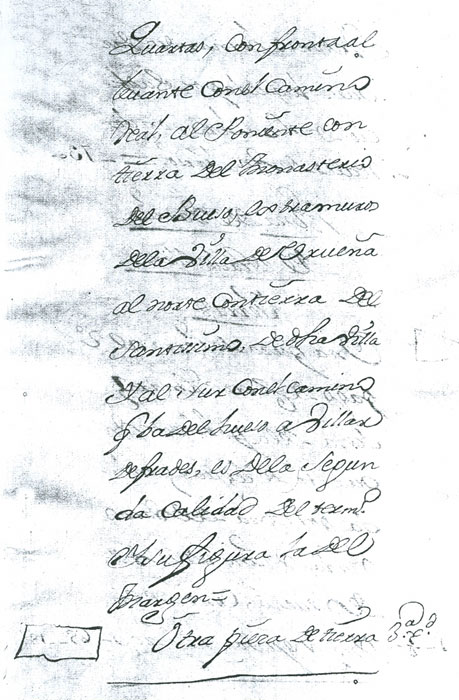 Quartas, confronta al
levante Conel Camino
Real, al Poniente con
tierra del Monasterio
del Bueso, extramuros
dela Villa de Urueña
al norte Contierra del
Santissimo, de dha Villa
Y al Sur Conel camino
q̃ ba del bueso a Villar
defrades, es dela Segun
da Calidad del term.º
Y su figura la del
Margen=
Otra pieza de tierra